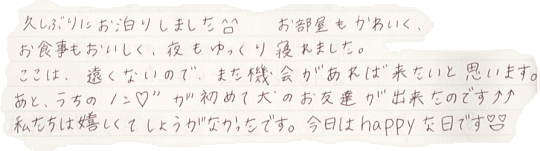 久しぶりにお泊りしました　お部屋もかわいく、
お食事もおいしく、夜もゆっくり寝れました。
ここは、遠くないので、また機会があれば来たいと思います。
あと、うちのノン♡”が初めて犬のお友達が出来たのです↑↑
私たちは嬉しくてしょうがなかったです。今日はhappyな日です♡